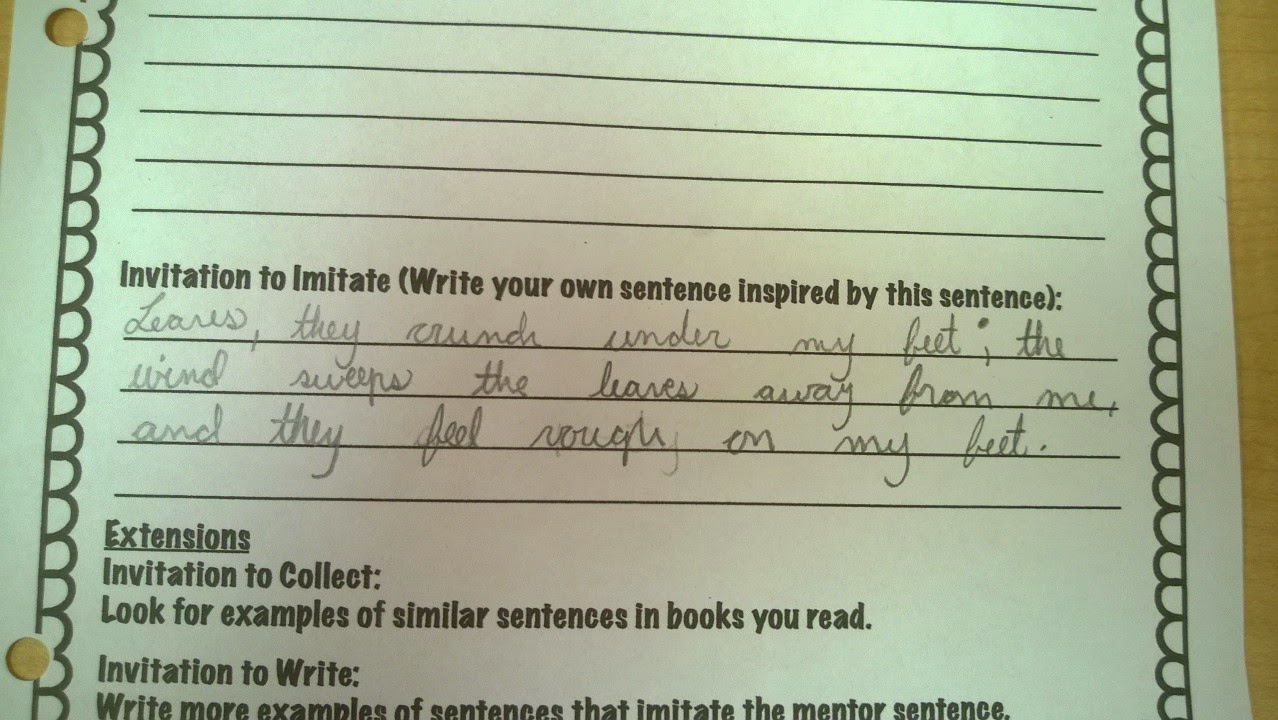 Invitation to Imitate (Write your own sentence inspired by this sentence):
Leaves, they crunch under my feet; the
wind sweeps the leaves away from me,
and they feel rough on my feet.
Extensions
Invitation to Collect:
Look for examples of similar sentences in books you read.
Invitation to Write:
Write more examples of sentences that imitate the mentor sentence.